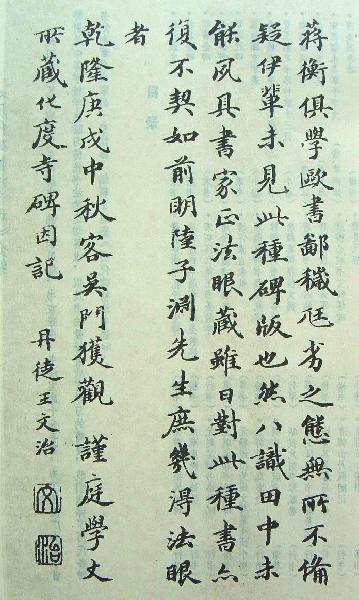 蔣衡俱學歐書鄙穢尫劣之態無所不備
疑伊輩未見此種碑版也然八識田中未
能夙具書家正法眼藏雖日對此種書亦
復不契如前明陸子淵先生庶幾得法眼
者
乾隆庚戌中秋客吳門獲觀 謹庭學丈
所藏化度寺碑因記 丹徒王文治
文
治